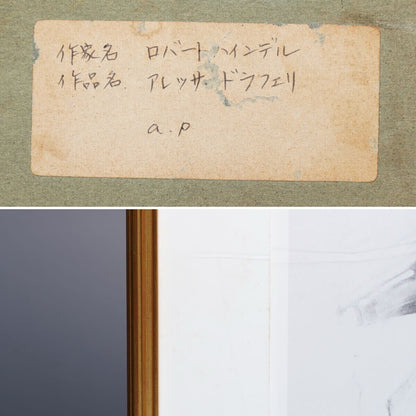 作家名 ロバートハインデル
作品名 アレッサンドラフェリ
a.p